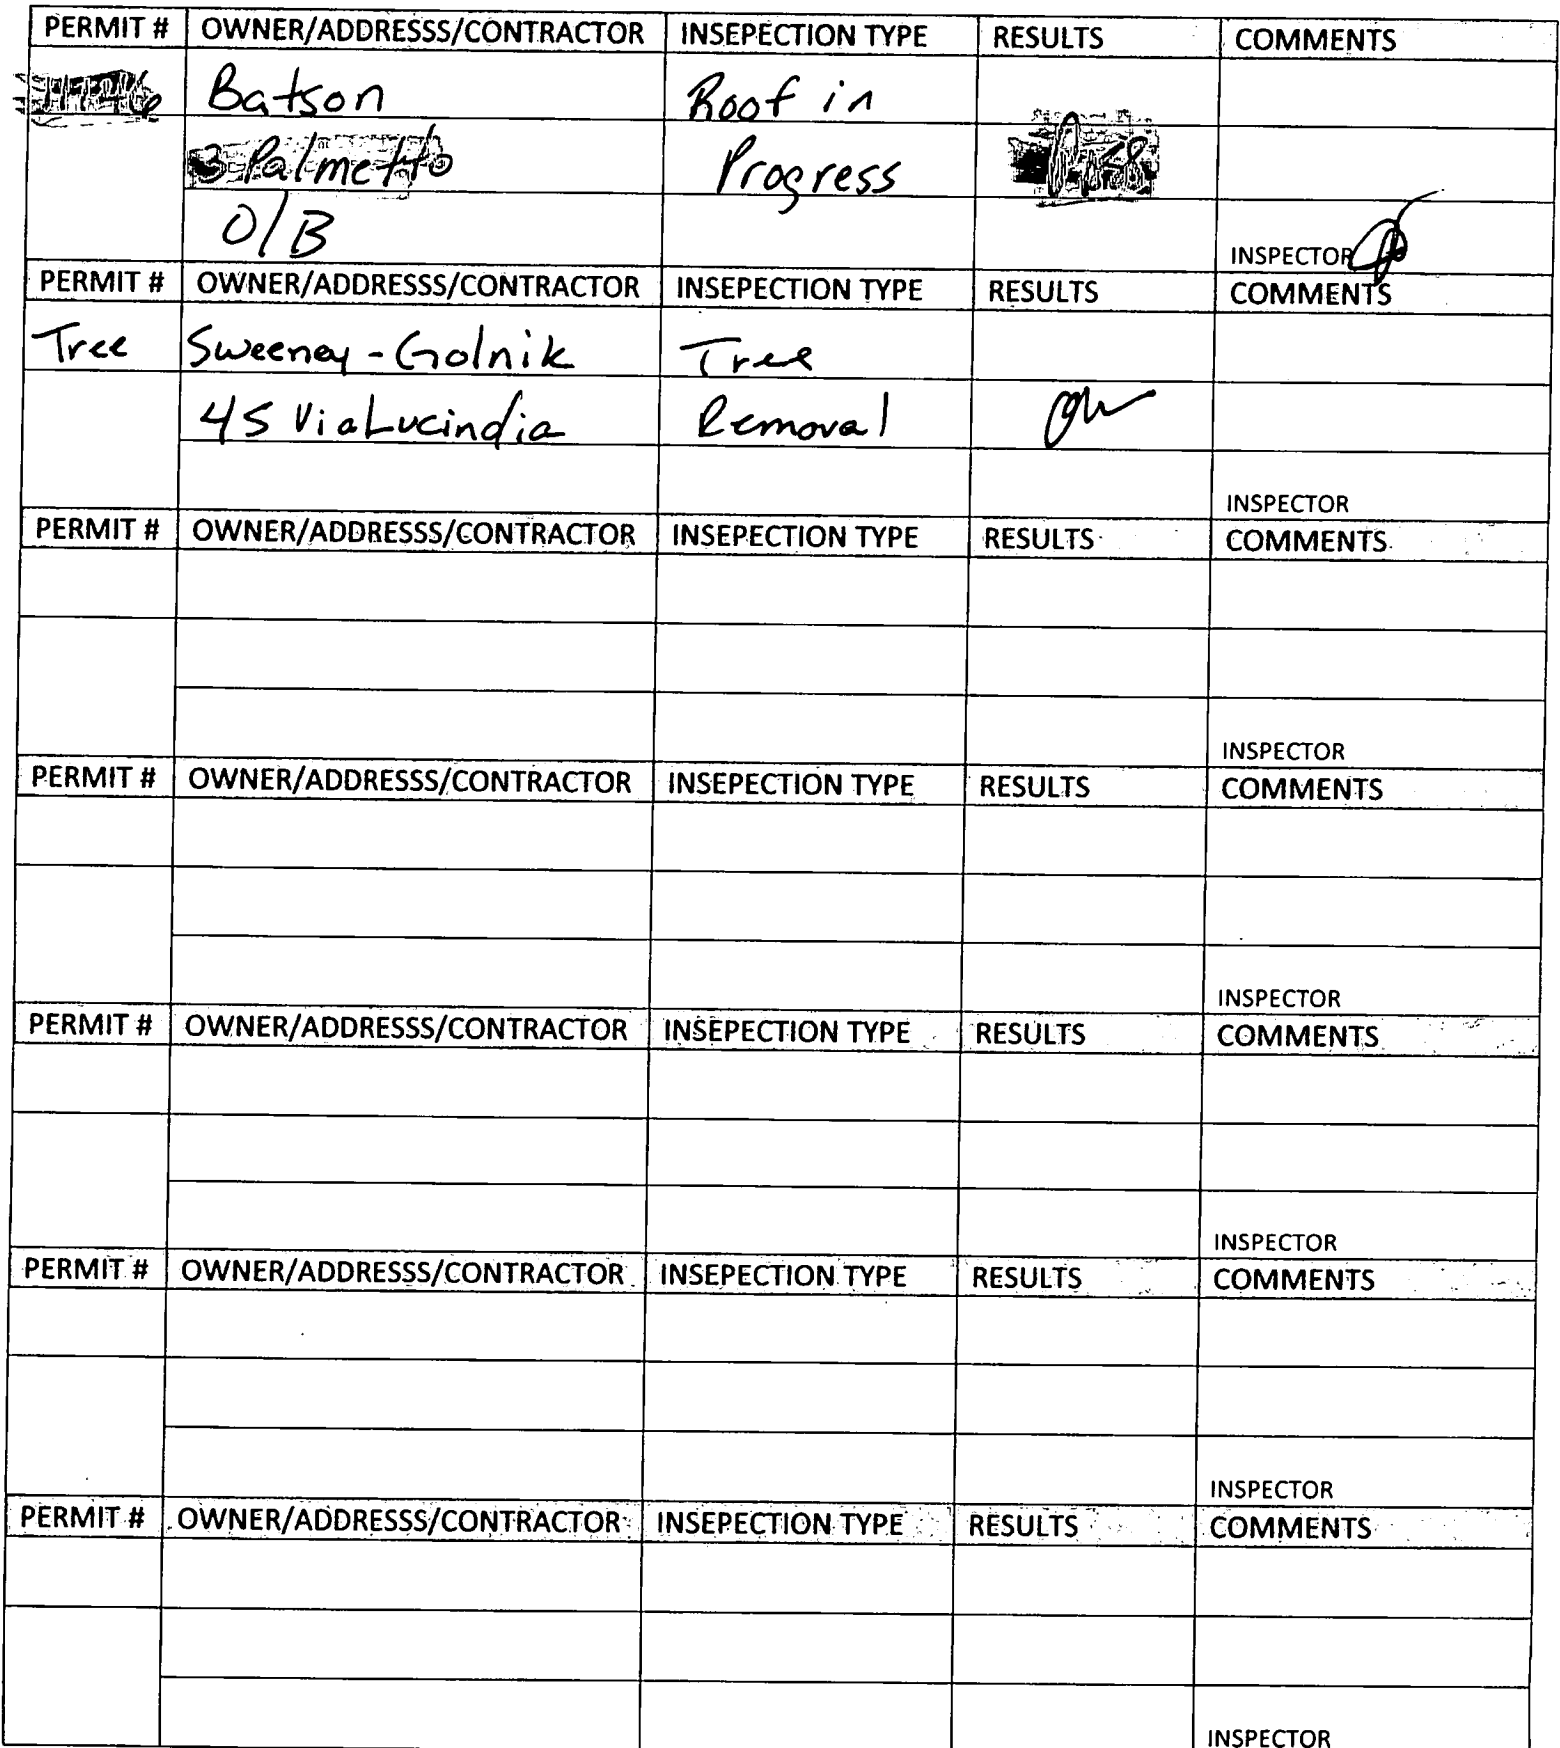 PERMIT # OWNER/ADDRESSS/CONTRACTOR INSEPECTION TYPE RESULTS COMMENTS
Batson Roof in
3 Palmetto Progress
O/B
INSPECTOR
PERMIT # OWNER/ADDRESSS/CONTRACTOR INSEPECTION TYPE RESULTS COMMENTS
Tree Sweeney-Golnik Tree
45 Via Lucindia Removal
INSPECTOR
PERMIT # OWNER/ADDRESSS/CONTRACTOR INSEPECTION TYPE RESULTS COMMENTS
INSPECTOR
PERMIT # OWNER/ADDRESSS/CONTRACTOR INSEPECTION TYPE RESULTS COMMENTS
INSPECTOR
PERMIT # OWNER/ADDRESSS/CONTRACTOR INSEPECTION TYPE RESULTS COMMENTS
INSPECTOR
PERMIT # OWNER/ADDRESSS/CONTRACTOR INSEPECTION TYPE RESULTS COMMENTS
INSPECTOR
PERMIT # OWNER/ADDRESSS/CONTRACTOR INSEPECTION TYPE RESULTS COMMENTS
INSPECTOR